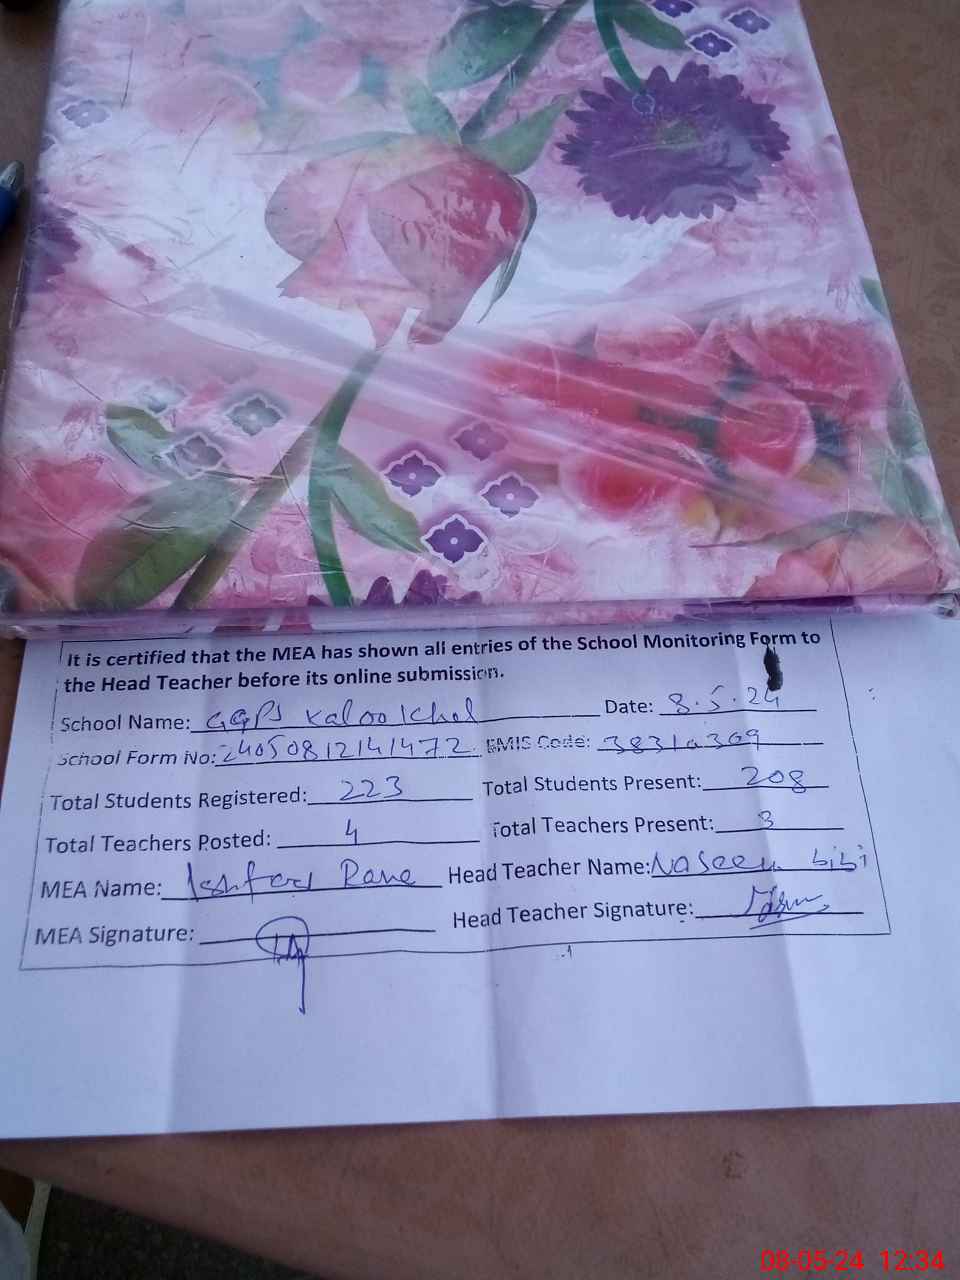 It is certified that the MEA has shown all entries of the School Monitoring Form to
the Head Teacher before its online submission.
School Name: GGPS Kaloo Khel Date: 8.5.24
School Form No: 24050812141472 EMIS Code: 38310309
Total Students Registered: 223 Total Students Present: 208
Total Teachers Posted: 4 Total Teachers Present: 3
MEA Name: Rana Head Teacher Name: Naseem bibi
MEA Signature: Head Teacher Signature:
08-05-24 12:34